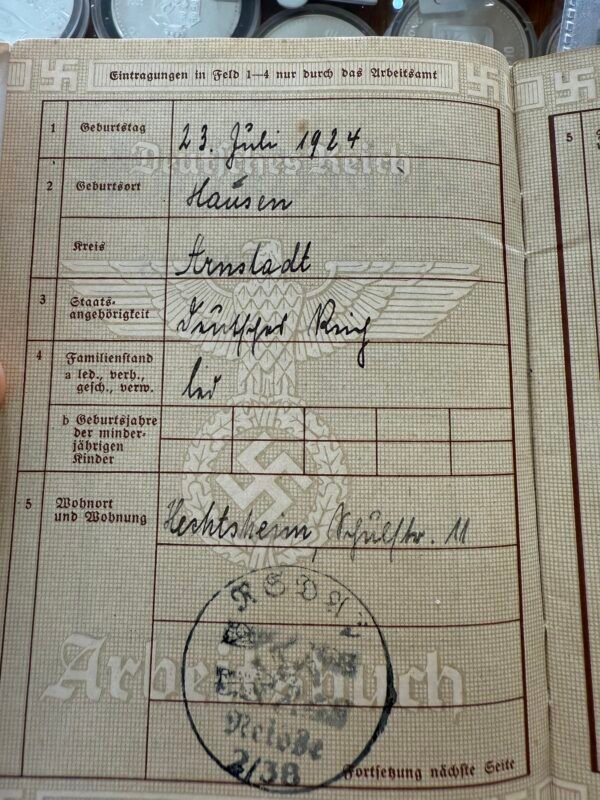 Eintragungen in Feld 1–4 nur durch das Arbeitsamt
1 Geburtstag 23. Juli 1924
Deutsches Reich
2 Geburtsort Hausen
Kreis Arnstadt
3 Staats-
angehörigkeit Deutsches Reich
4 Familienstand
a led., verh.,
gesch., verw. led
b Geburtsjahre
der minder-
jährigen
Kinder
5 Wohnort
und Wohnung Hechtsheim, Schulstr. 11
5
Arbeitsbuch
2/38
Fortsetzung nächste Seite